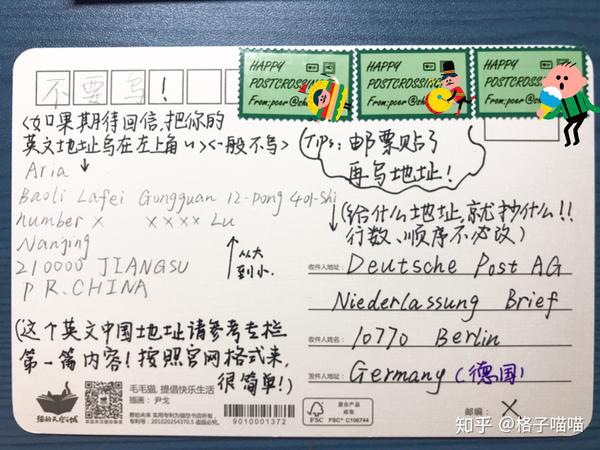 不要写!
HAPPY
POSTCROSSING
From:poer@
HAPPY
POSTCROSSING
From:poer@
HAPPY
POSTCROSSING
From:poer@
<如果期待回信,把你的
英文地址写在左上角↓><一般不写>
Aria
Baoli Lafei Gongguan 12-Dong 401-Shi
number × ×××× Lu
Nanjing
210000 JIANGSU
P R.CHINA
从大
到小.
(这个英文中国地址请参考专栏
第一篇内容!按照官网格式来,
很简单!)
(Tips: 邮票贴了
再写地址!
(给什么地址,就抄什么!!
行数、顺序不必改)
收件人地址: Deutsche Post AG
Niederlassung Brief
收件人姓名: 10770 Berlin
发件人地址: Germany (德国)
邮编: ×.
猫的天空之城
毛毛猫,提倡快乐生活
插画:尹戈
9010001372
FSC
混合产品
纸张
FSC® C106744
知乎 @格子喵喵